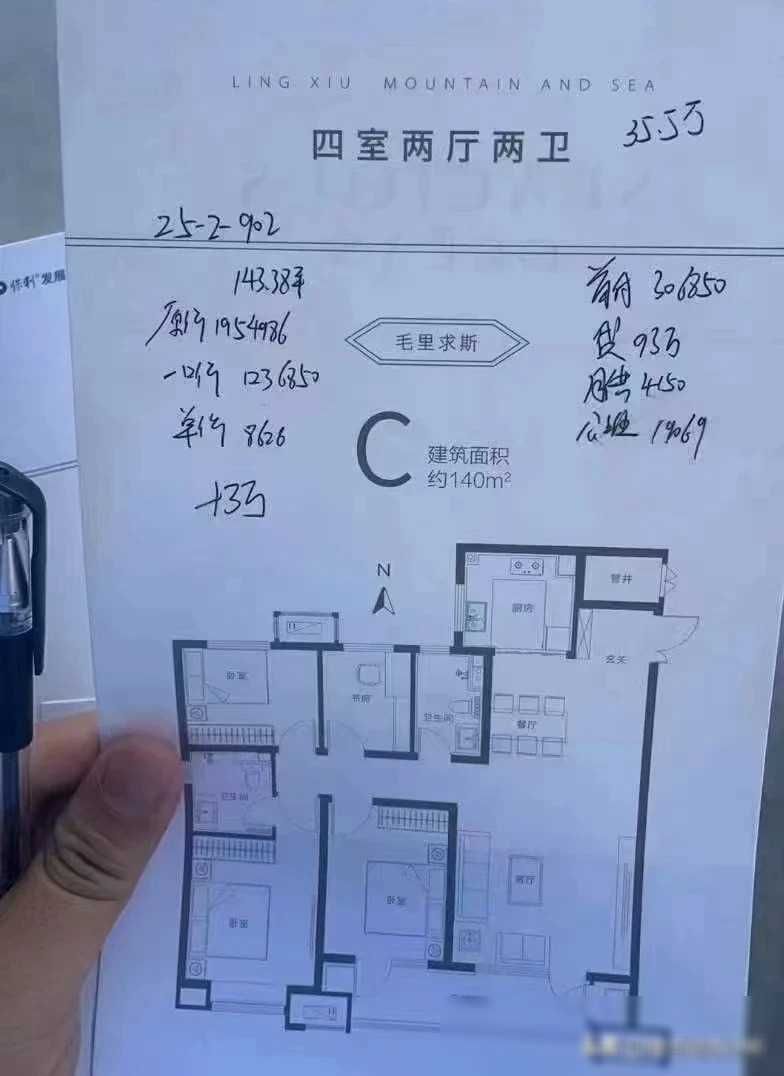 LING XIU MOUNTAIN AND SEA
四室两厅两卫
35.5万
25-2-902
保利®发展
143.38平
原价1954986
一口价 1236850
单价 8626
+3万
毛里求斯
C
建筑面积
约140m²
首付 306850
贷 93万
月供 4150
公维 19069
N
厨房
管井
玄关
卧室
书房
卫生间
餐厅
卫生间
卧室
卧室
客厅